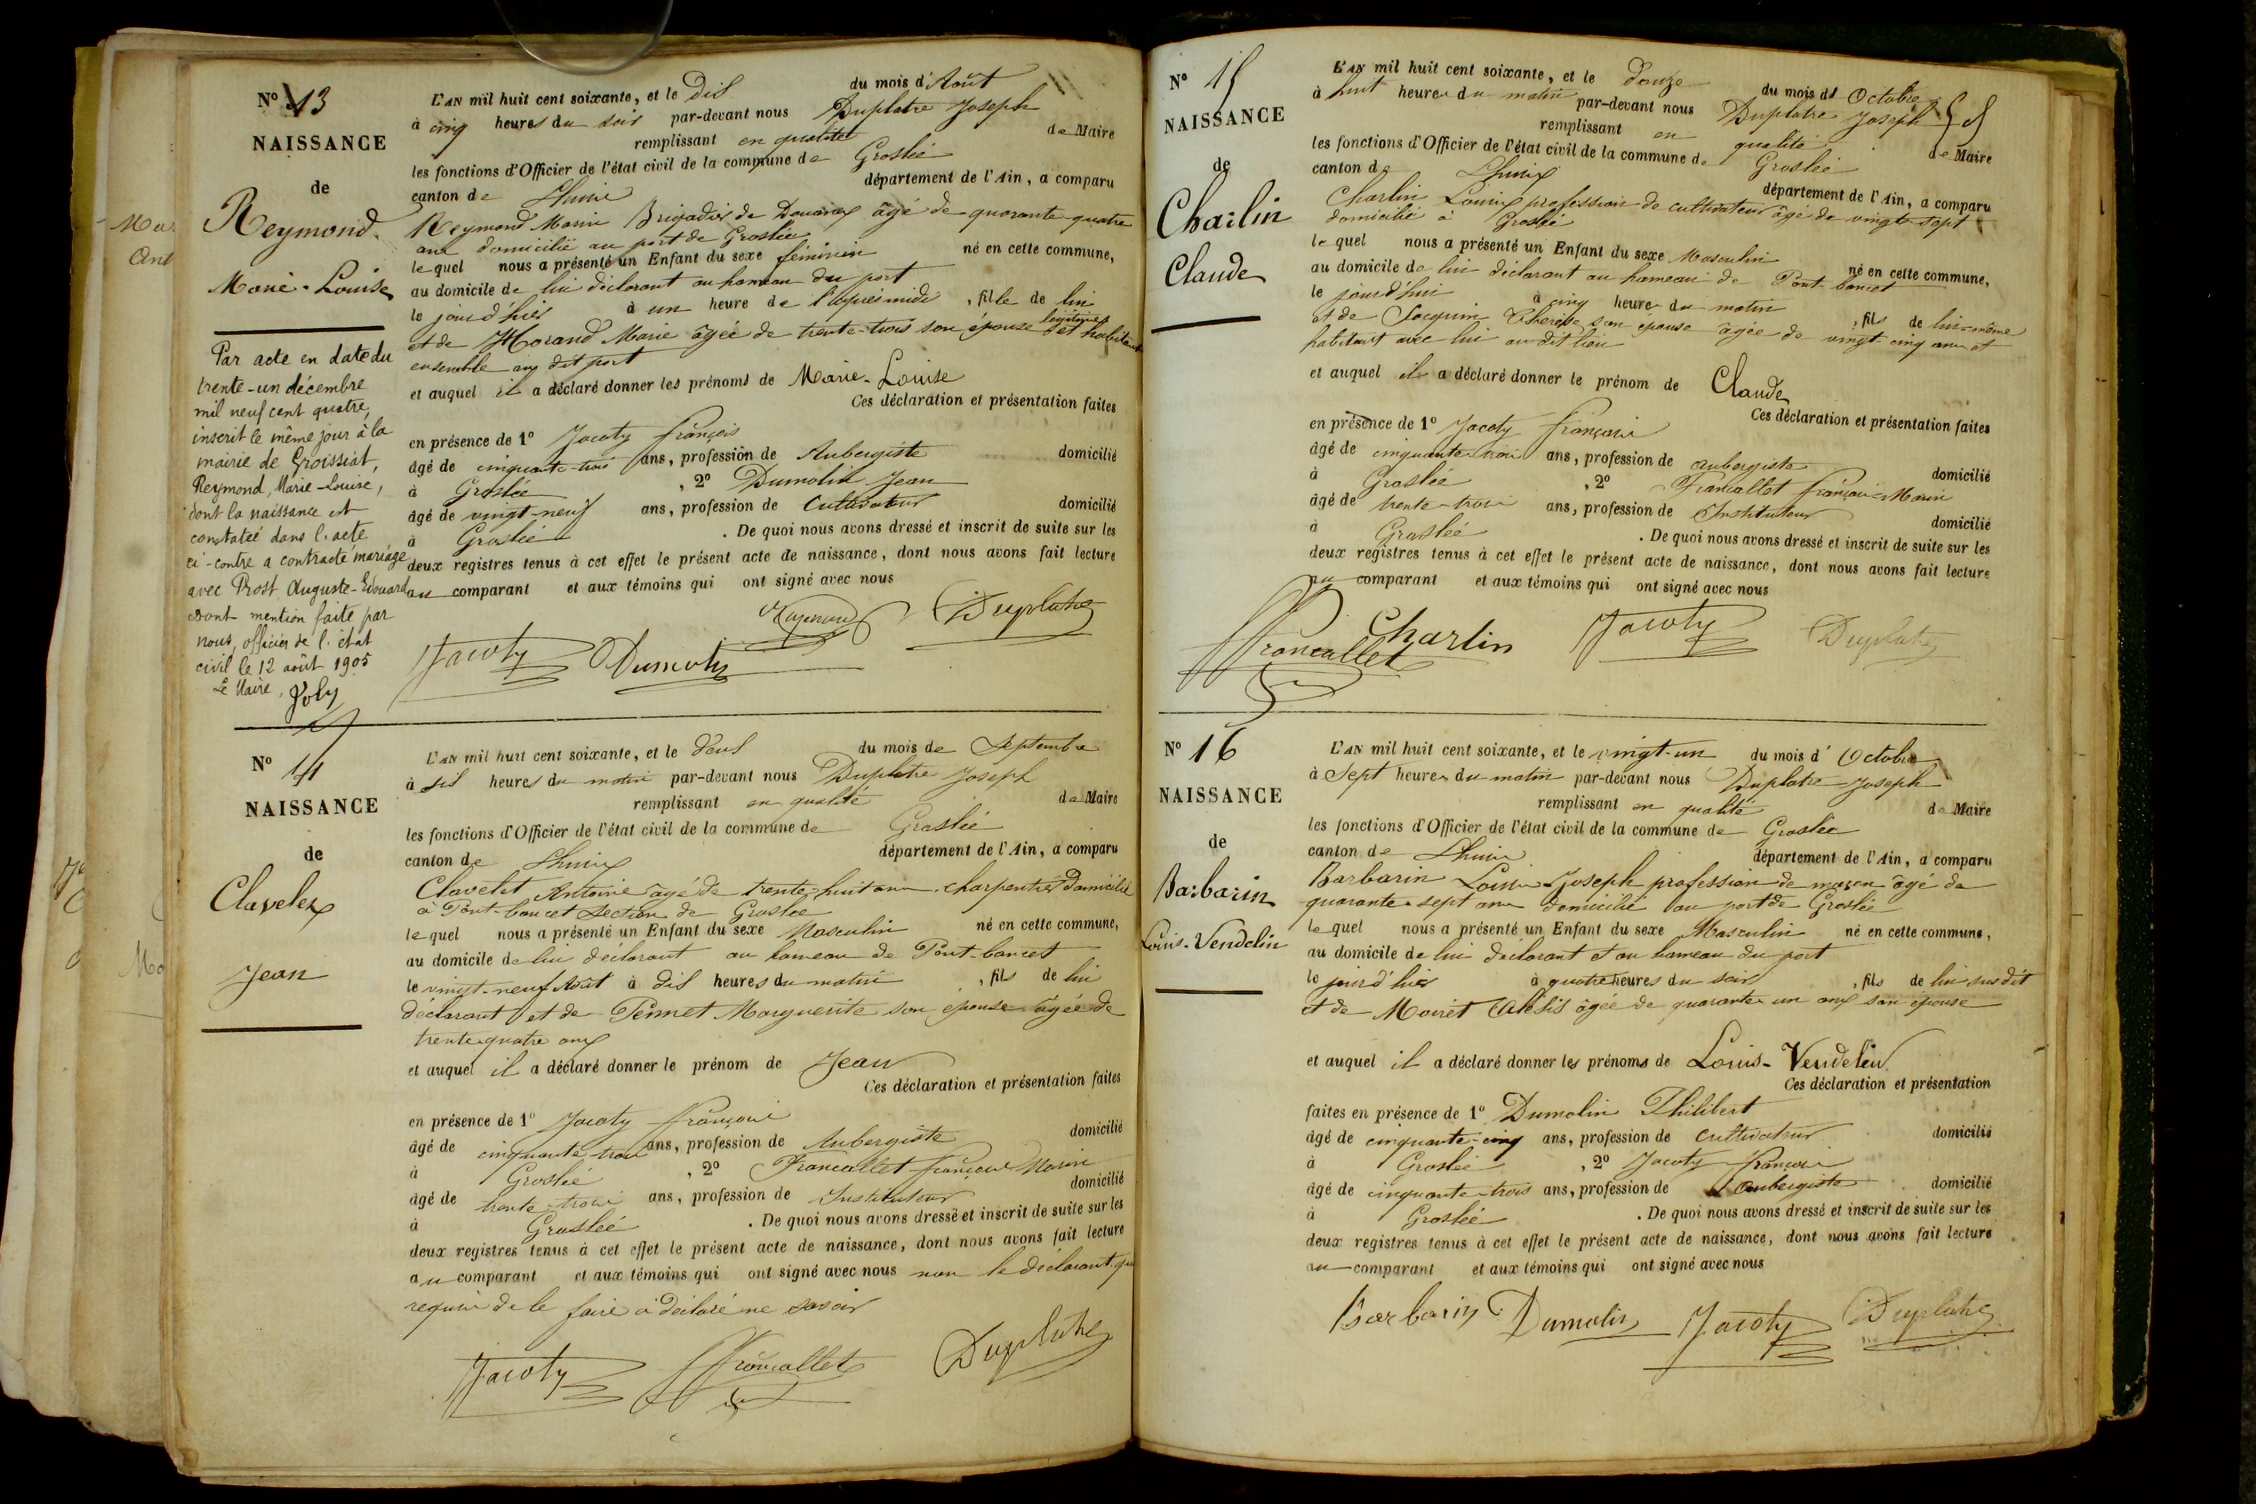 Nº 13
NAISSANCE
de
Reymond
Marie-Louise
Par acte en date du
trente-un décembre
mil neuf cent quatre,
inscrit le même jour à la
mairie de Groissiat,
Reymond, Marie-Louise,
dont la naissance est
constatée dans l'acte
ci-contre a contracté mariage
avec Prost Auguste-Edouard
Dont mention faite par
nous, officier de l'état
civil le 12 août 1905
Le Maire, Joly
L'AN mil huit cent soixante, et le dix du mois d'Août
à cinq heures du soir par-devant nous Duplatre Joseph
remplissant en qualité de Maire
les fonctions d'Officier de l'état civil de la commune de Groslée
canton de Lhuis département de l'Ain, a comparu
Reymond Marin Brigadier de Douanes âgé de quarante quatre
ans domicilié au port de Groslée
lequel nous a présenté un Enfant du sexe féminin né en cette commune,
au domicile de lui déclarant au hameau du port
le jour d'hier à un heure de l'après midi, fille de lui
et de Morand Marie âgée de trente-trois son épouse légitime et habitant
ensemble au dit port
et auquel il a déclaré donner les prénoms de Marie-Louise
Ces déclaration et présentation faites
en présence de 1º Jacoty françois
âgé de cinquante-trois ans, profession de Aubergiste domicilié
à Groslée, 2º Dumolin Jean
âgé de vingt-neuf ans, profession de Cultivateur domicilié
à Groslée. De quoi nous avons dressé et inscrit de suite sur les
deux registres tenus à cet effet le présent acte de naissance, dont nous avons fait lecture
au comparant et aux témoins qui ont signé avec nous
Reymond Duplatre
Jacoty Dumolin
Nº 14
NAISSANCE
de
Clavelet
Jean
L'AN mil huit cent soixante, et le deux du mois de Septembre
à six heures du matin par-devant nous Duplatre Joseph
remplissant en qualité de Maire
les fonctions d'Officier de l'état civil de la commune de Groslée
canton de Lhuis département de l'Ain, a comparu
Clavelet Antoine âgé de trente-huit ans charpentier Domicilié
à Pont-bancet section de Groslée
lequel nous a présenté un Enfant du sexe Masculin né en cette commune,
au domicile de lui déclarant au hameau de Pont-bancet
le vingt-neuf Août à dix heures du matin, fils de lui
déclarant et de Pennet Marguerite son épouse âgée de
trente quatre ans
et auquel il a déclaré donner le prénom de Jean
Ces déclaration et présentation faites
en présence de 1º Jacoty françois
âgé de cinquante-trois ans, profession de Aubergiste domicilié
à Groslée, 2º Francallet françois Marin
âgé de trente-trois ans, profession de Instituteur domicilié
à Groslée. De quoi nous avons dressé et inscrit de suite sur les
deux registres tenus à cet effet le présent acte de naissance, dont nous avons fait lecture
au comparant et aux témoins qui ont signé avec nous non le déclarant qui
requis de le faire a déclaré ne savoir
Jacoty Francallet Duplatre
Nº 15
NAISSANCE
de
Charlin
Claude
L'AN mil huit cent soixante, et le douze du mois d'Octobre
à huit heures du matin par-devant nous Duplatre Joseph
remplissant en qualité de Maire
les fonctions d'Officier de l'état civil de la commune de Groslée
canton de Lhuis département de l'Ain, a comparu
Charlin Louis profession de cultivateur âgé de vingt-sept
domicilié à Groslée
lequel nous a présenté un Enfant du sexe Masculin né en cette commune,
au domicile de lui déclarant au hameau de Pont-bancet
le jourd'hui à cinq heures du matin, fils de lui-même
et de Jacquin Thérèse son épouse âgée de vingt cinq ans et
habitant avec lui au dit lieu
et auquel il a déclaré donner le prénom de Claude
Ces déclaration et présentation faites
en présence de 1º Jacoty françois
âgé de cinquante-trois ans, profession de aubergiste domicilié
à Groslée, 2º Francallet françois-Marin
âgé de trente-trois ans, profession de Instituteur domicilié
à Groslée. De quoi nous avons dressé et inscrit de suite sur les
deux registres tenus à cet effet le présent acte de naissance, dont nous avons fait lecture
au comparant et aux témoins qui ont signé avec nous
Francallet Charlin Jacoty Duplatre
Nº 16
NAISSANCE
de
Barbarin
Louis-Vendelin
L'AN mil huit cent soixante, et le vingt-un du mois d'Octobre
à Sept heures du matin par-devant nous Duplatre Joseph
remplissant en qualité de Maire
les fonctions d'Officier de l'état civil de la commune de Groslée
canton de Lhuis département de l'Ain, a comparu
Barbarin Louis-Joseph profession de maçon âgé de
quarante-sept ans domicilié au port de Groslée
lequel nous a présenté un Enfant du sexe Masculin né en cette commune,
au domicile de lui déclarant et au hameau du port
le jour d'hier à quatre heures du soir, fils de lui susdit
et de Moiret Alexis âgée de quarante un ans son épouse
et auquel il a déclaré donner les prénoms de Louis-Vendelin
Ces déclaration et présentation
faites en présence de 1º Dumolin Philibert
âgé de cinquante-cinq ans, profession de cultivateur domicilié
à Groslée, 2º Jacoty françois
âgé de cinquante-trois ans, profession de aubergiste domicilié
à Groslée. De quoi nous avons dressé et inscrit de suite sur les
deux registres tenus à cet effet le présent acte de naissance, dont nous avons fait lecture
au comparant et aux témoins qui ont signé avec nous
Barbarin Dumolin Jacoty Duplatre